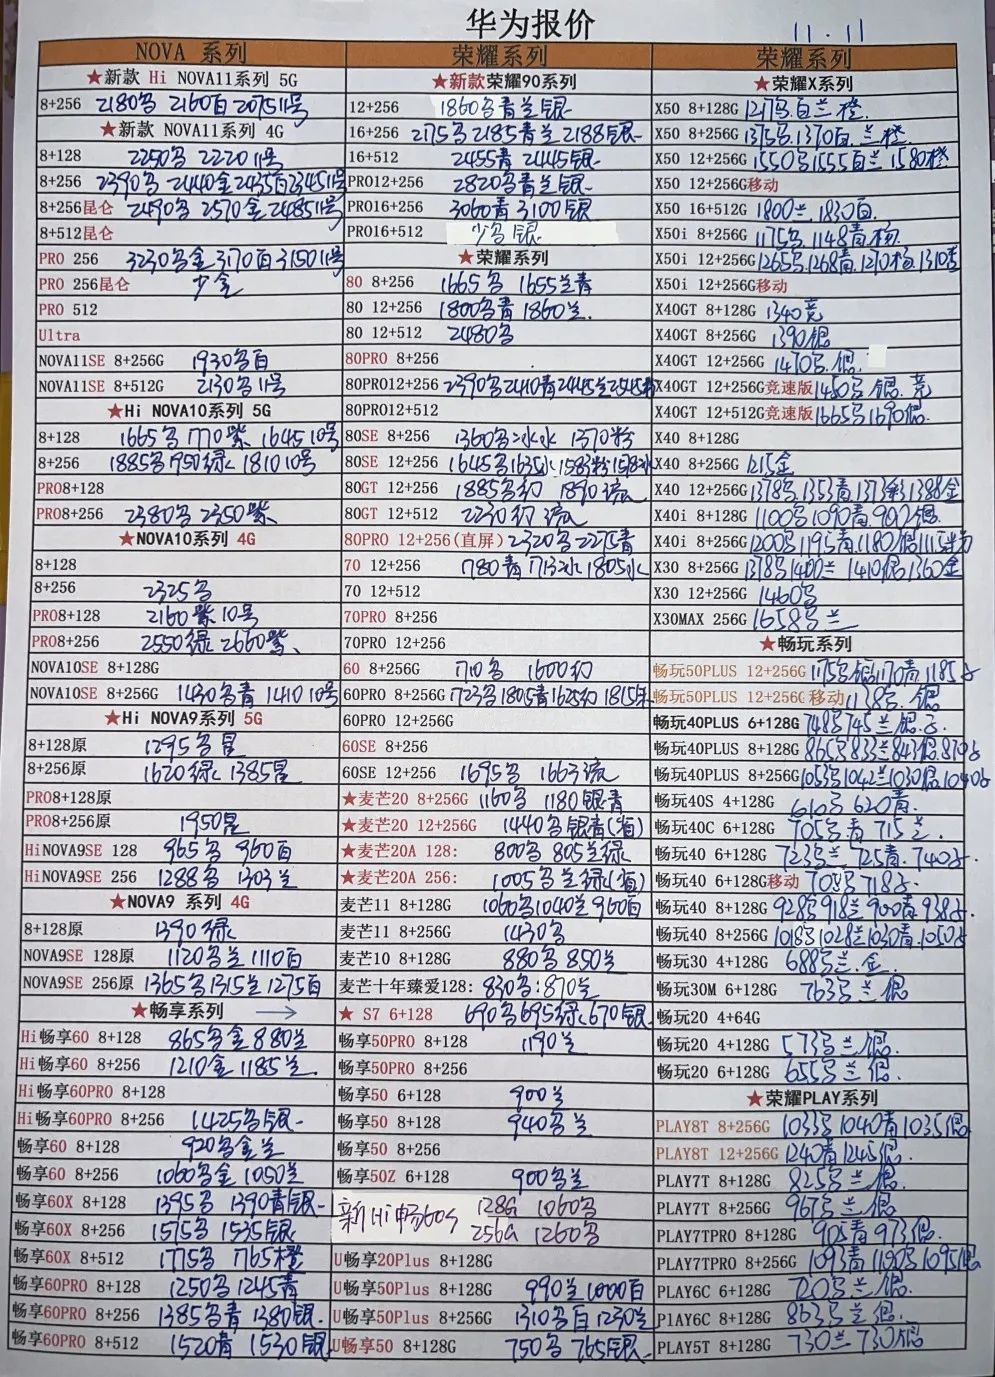 华为报价 11.11
NOVA 系列
★新款 Hi NOVA11系列 5G
8+256 2180多 2160百 2075 11号
★新款 NOVA11系列 4G
8+128 2250多 2220 11号
8+256 2390多 2440金 2435百 2345 11号
8+256昆仑 2490多 2570金 2485 11号
8+512昆仑
PRO 256 3230多金 3170百 3150 11号
PRO 256昆仑 少金
PRO 512
Ultra
NOVA11SE 8+256G 1930多百
NOVA11SE 8+512G 2130多 11号
★Hi NOVA10系列 5G
8+128 1665多 1770紫 1645 10号
8+256 1885多 1950绿 1810 10号
PRO8+128
PRO8+256 2380多 2350紫
★NOVA10系列 4G
8+128
8+256 2325多
PRO8+128 2160紫 10号
PRO8+256 2550绿 2660紫
NOVA10SE 8+128G
NOVA10SE 8+256G 1430多青 1410 10号
★Hi NOVA9系列 5G
8+128原 1295多星
8+256原 1620绿 1385星
PRO8+128原
PRO8+256原 1950星
HiNOVA9SE 128 965多 960百
HiNOVA9SE 256 1288多 1303兰
★NOVA9 系列 4G
8+128原 1390绿
NOVA9SE 128原 1120多兰 1110百
NOVA9SE 256原 1365多 1315兰 1275百
★畅享系列 →
Hi畅享60 8+128 865多金 880兰
Hi畅享60 8+256 1210金 1185兰
Hi畅享60PRO 8+128
Hi畅享60PRO 8+256 1425多银
畅享60 8+128 920多金兰
畅享60 8+256 1060多金 1050兰
畅享60X 8+128 1395多 1390青银
畅享60X 8+256 1575多 1535银
畅享60X 8+512 1775多 1765橙
畅享60PRO 8+128 1250多 1245青
畅享60PRO 8+256 1385多青 1380银
畅享60PRO 8+512 1520青 1530银
荣耀系列
★新款荣耀90系列
12+256 1860多青兰银
16+256 2175多 2185青兰 2188银
16+512 2455青 2445银
PRO12+256 2820多青兰银
PRO16+256 3060青 3100银
PRO16+512 少多银
★荣耀系列
80 8+256 1665多 1655兰青
80 12+256 1800多青 1860兰
80 12+512 2480多
80PRO 8+256
80PRO12+256 2390多 2410青 2445兰
80PRO12+512
80SE 8+256 1360多冰水 1370粉
80SE 12+256 1645多 1635冰 1585粉
80GT 12+256 1885多幻 1890流
80GT 12+512 2230幻流
80PRO 12+256(直屏) 2320多 2275青
70 12+256 1780青 1713冰 1805水
70 12+512
70PRO 8+256
70PRO 12+256
60 8+256G 1710多 1600幻
60PRO 8+256G 1723多 1805青 1625幻
60PRO 12+256G
60SE 8+256
60SE 12+256 1695多 1663流
★麦芒20 8+256G 1160多 1180银青
★麦芒20 12+256G 1440多银青(省)
★麦芒20A 128: 800多 805兰绿
★麦芒20A 256: 1005多兰绿(省)
麦芒11 8+128G 1060多 1040兰 960百
麦芒11 8+256G 1430多
麦芒10 8+128G 880多 850兰
麦芒十年臻爱128: 830多 870兰
★ S7 6+128 690多 695绿 670银
畅享50PRO 8+128 1190兰
畅享50PRO 8+256
畅享50 6+128 900兰
畅享50 8+128 940多兰
畅享50 8+256
畅享50Z 6+128 900多兰
新Hi畅60S 128G 1060多
256G 1260多
U畅享20Plus 8+128G
U畅享50Plus 8+128G 990兰 1000百
U畅享50Plus 8+256G 1310多百 1230兰
U畅享50 8+128G 750多 765银
荣耀系列
★荣耀X系列
X50 8+128G 1247多 百兰橙
X50 8+256G 1375多 1370百 兰橙
X50 12+256G 1550多 1555百兰 1580橙
X50 12+256G移动
X50 16+512G 1800兰 1830百
X50i 8+256G 1175多 1148青
X50i 12+256G 1265多 1268青
X50i 12+256G移动
X40GT 8+128G 1340竞
X40GT 8+256G 1390银
X40GT 12+256G 1470多 银
X40GT 12+256G竞速版 1450多银 竞
X40GT 12+512G竞速版 1665多 1690银
X40 8+128G
X40 8+256G 1215金
X40 12+256G 1378多 1353青 1373彩 1388金
X40i 8+128G 1100多 1090青
X40i 8+256G 1200多 1195青 1180银
X30 8+256G 1378多 1400兰 1410银 1360金
X30 12+256G 1460多
X30MAX 256G 1658多兰
★畅玩系列
畅玩50PLUS 12+256G 1175多银 1170青
畅玩50PLUS 12+256G 移动 1138多 银
畅玩40PLUS 6+128G 748多 745兰银
畅玩40PLUS 8+128G 865多 833兰 843银
畅玩40PLUS 8+256G 1053多 1042兰 1030银
畅玩40S 4+128G 610多 620青
畅玩40C 6+128G 705多青 715兰
畅玩40 6+128G 723多兰 725青
畅玩40 6+128G移动 705多
畅玩40 8+128G 928多 918兰 900青
畅玩40 8+256G 1018多 1028兰 1030青
畅玩30 4+128G 688多兰 金
畅玩30M 6+128G 763多兰银
畅玩20 4+64G
畅玩20 4+128G 573多兰银
畅玩20 6+128G 655多兰银
★荣耀PLAY系列
PLAY8T 8+256G 1033多 1040青 1035银
PLAY8T 12+256G 1240青 1245银
PLAY7T 8+128G 825多兰银
PLAY7T 8+256G 967多兰银
PLAY7TPRO 8+128G 905青 973银
PLAY7TPRO 8+256G 1093青 1190多 1095银
PLAY6C 6+128G 720多兰银
PlAY6C 8+128G 863多兰银
PLAY5T 8+128G 730兰 730银